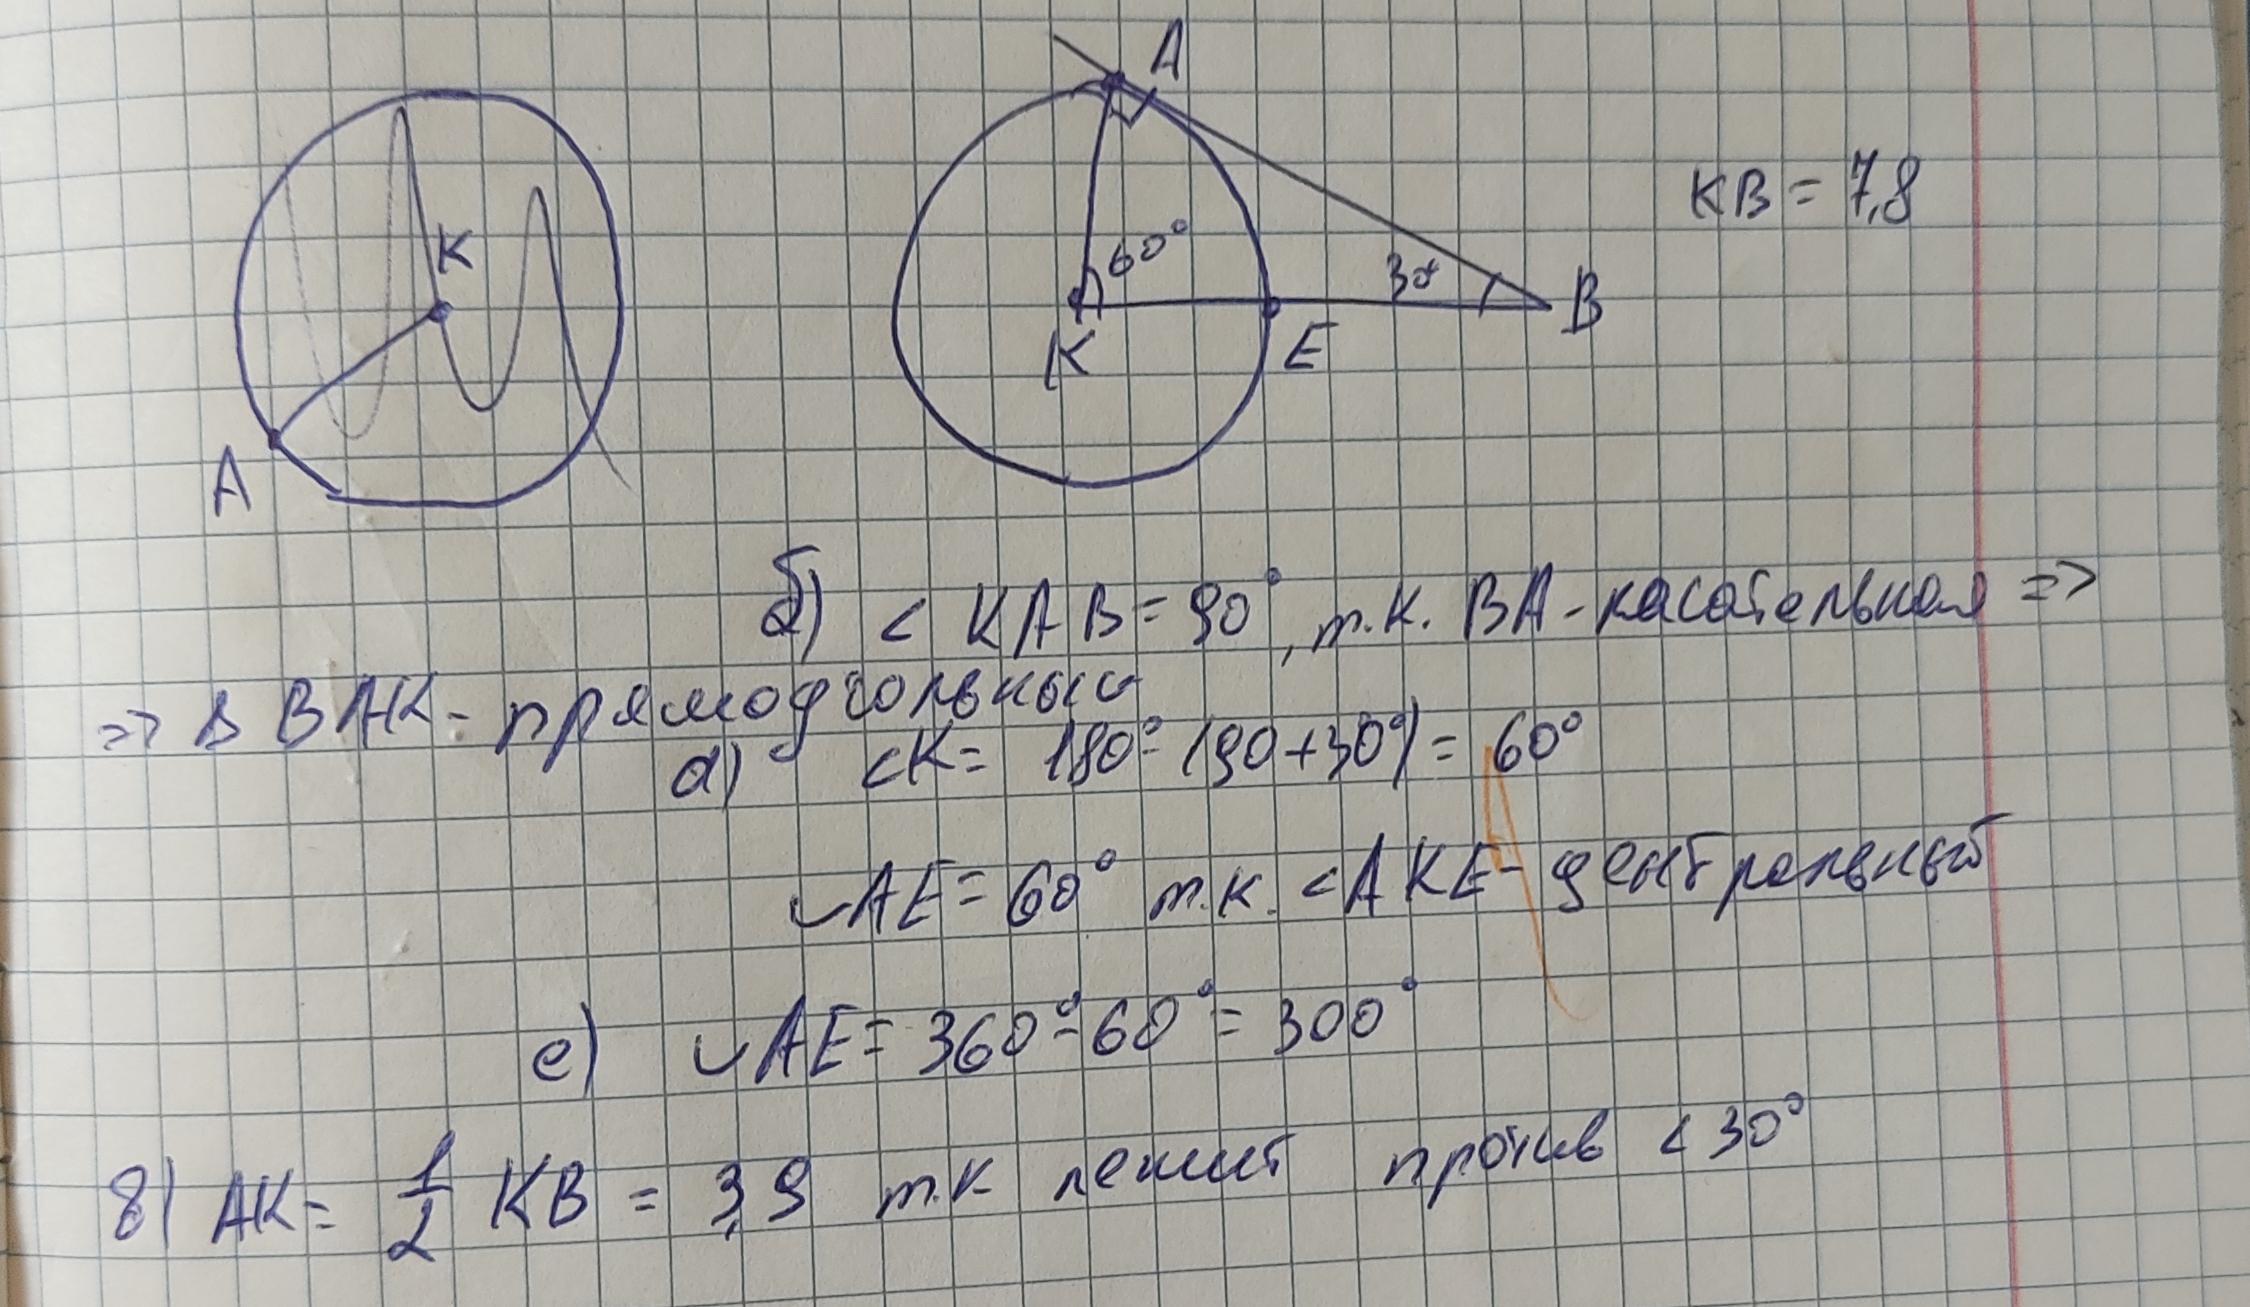 A
K
A
60°
30°
K
E
B
KB = 7,8
б) < KAB = 90°, т.к. BA - касательная =>
=> Δ BAK - прямоугольный
а) <K = 180° - (90 + 30°) = 60°
◡AE = 60° т.к. <AKE - центральный
е) ◡AE = 360° - 60° = 300°
8) AK = 1/2 KB = 3,9 т.к лежит против < 30°